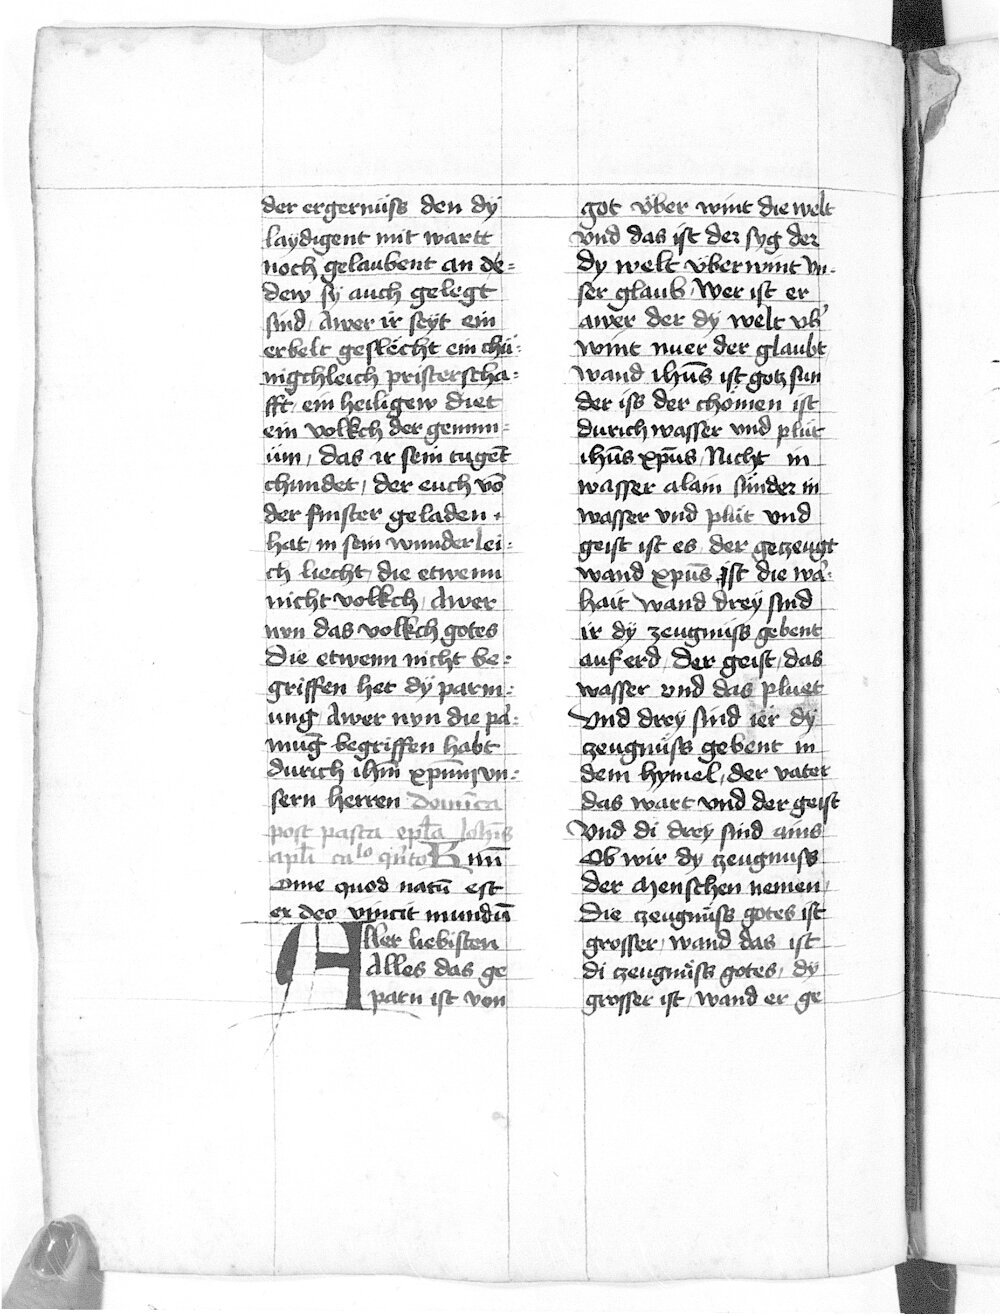 der ergernüss den dy
laydigent mit wartt
noch gelaubent an de=
dew sy auch gelegt
sind / Awer ir seyt ein
erbelt geslëcht ein chü=
nigchleich pristerscha=
fft / ein heiligew diet
ein volkch der gemin=
üm / das ir sein tugēt
chundet / der euch vō
der finster geladen
hat / in sein wunderlei=
ch liecht / die etwenn
nicht volkch / Awer
nvn das volkch gotes
Die etwenn nicht be=
griffen het dy parm=
ung Awer nvn die pa=
mūg begriffen habt
durich ihm̄ xp̄m vn=
sern herren Domīca
post pasca epl̄a Joh̄is
apl̄i ca^lo qīto
Ome quod natū est
ex deo vincit mundū
Aller liebisten
Alles das ge
parn ist von
got v̈ber wint die welt
vnd das ist der syg der
dy welt v̈berwint vn=
ser glaub / Wer ist er
awer der dy welt vb
wint nuer der glaubt
wand ihūs ist gotz sun
der iss der chömen ist
durich wasser vnd plüt
ihūs xp̄us / Nicht in
wasser alain sunder in
wasser vnd plüt vnd
geist ist es / der getzeugt
wand xp̄us ist die wa=
hait wand drey sind
ir dy zeugnüss gebent
auf erd / der geist / das
wasser vnd das pluet
Vnd drey sind ier dy
czeugnüss gebent in
dem hymel / der vater
das wart vnd der geist
Vnd di drey sind ains
Ob wir dy czeugnuss
der menschen nemen /
Die czeugnüss gotes ist
grosser / wand das ist
di czeugnüss gotes / dy
grosser ist / wand er ge